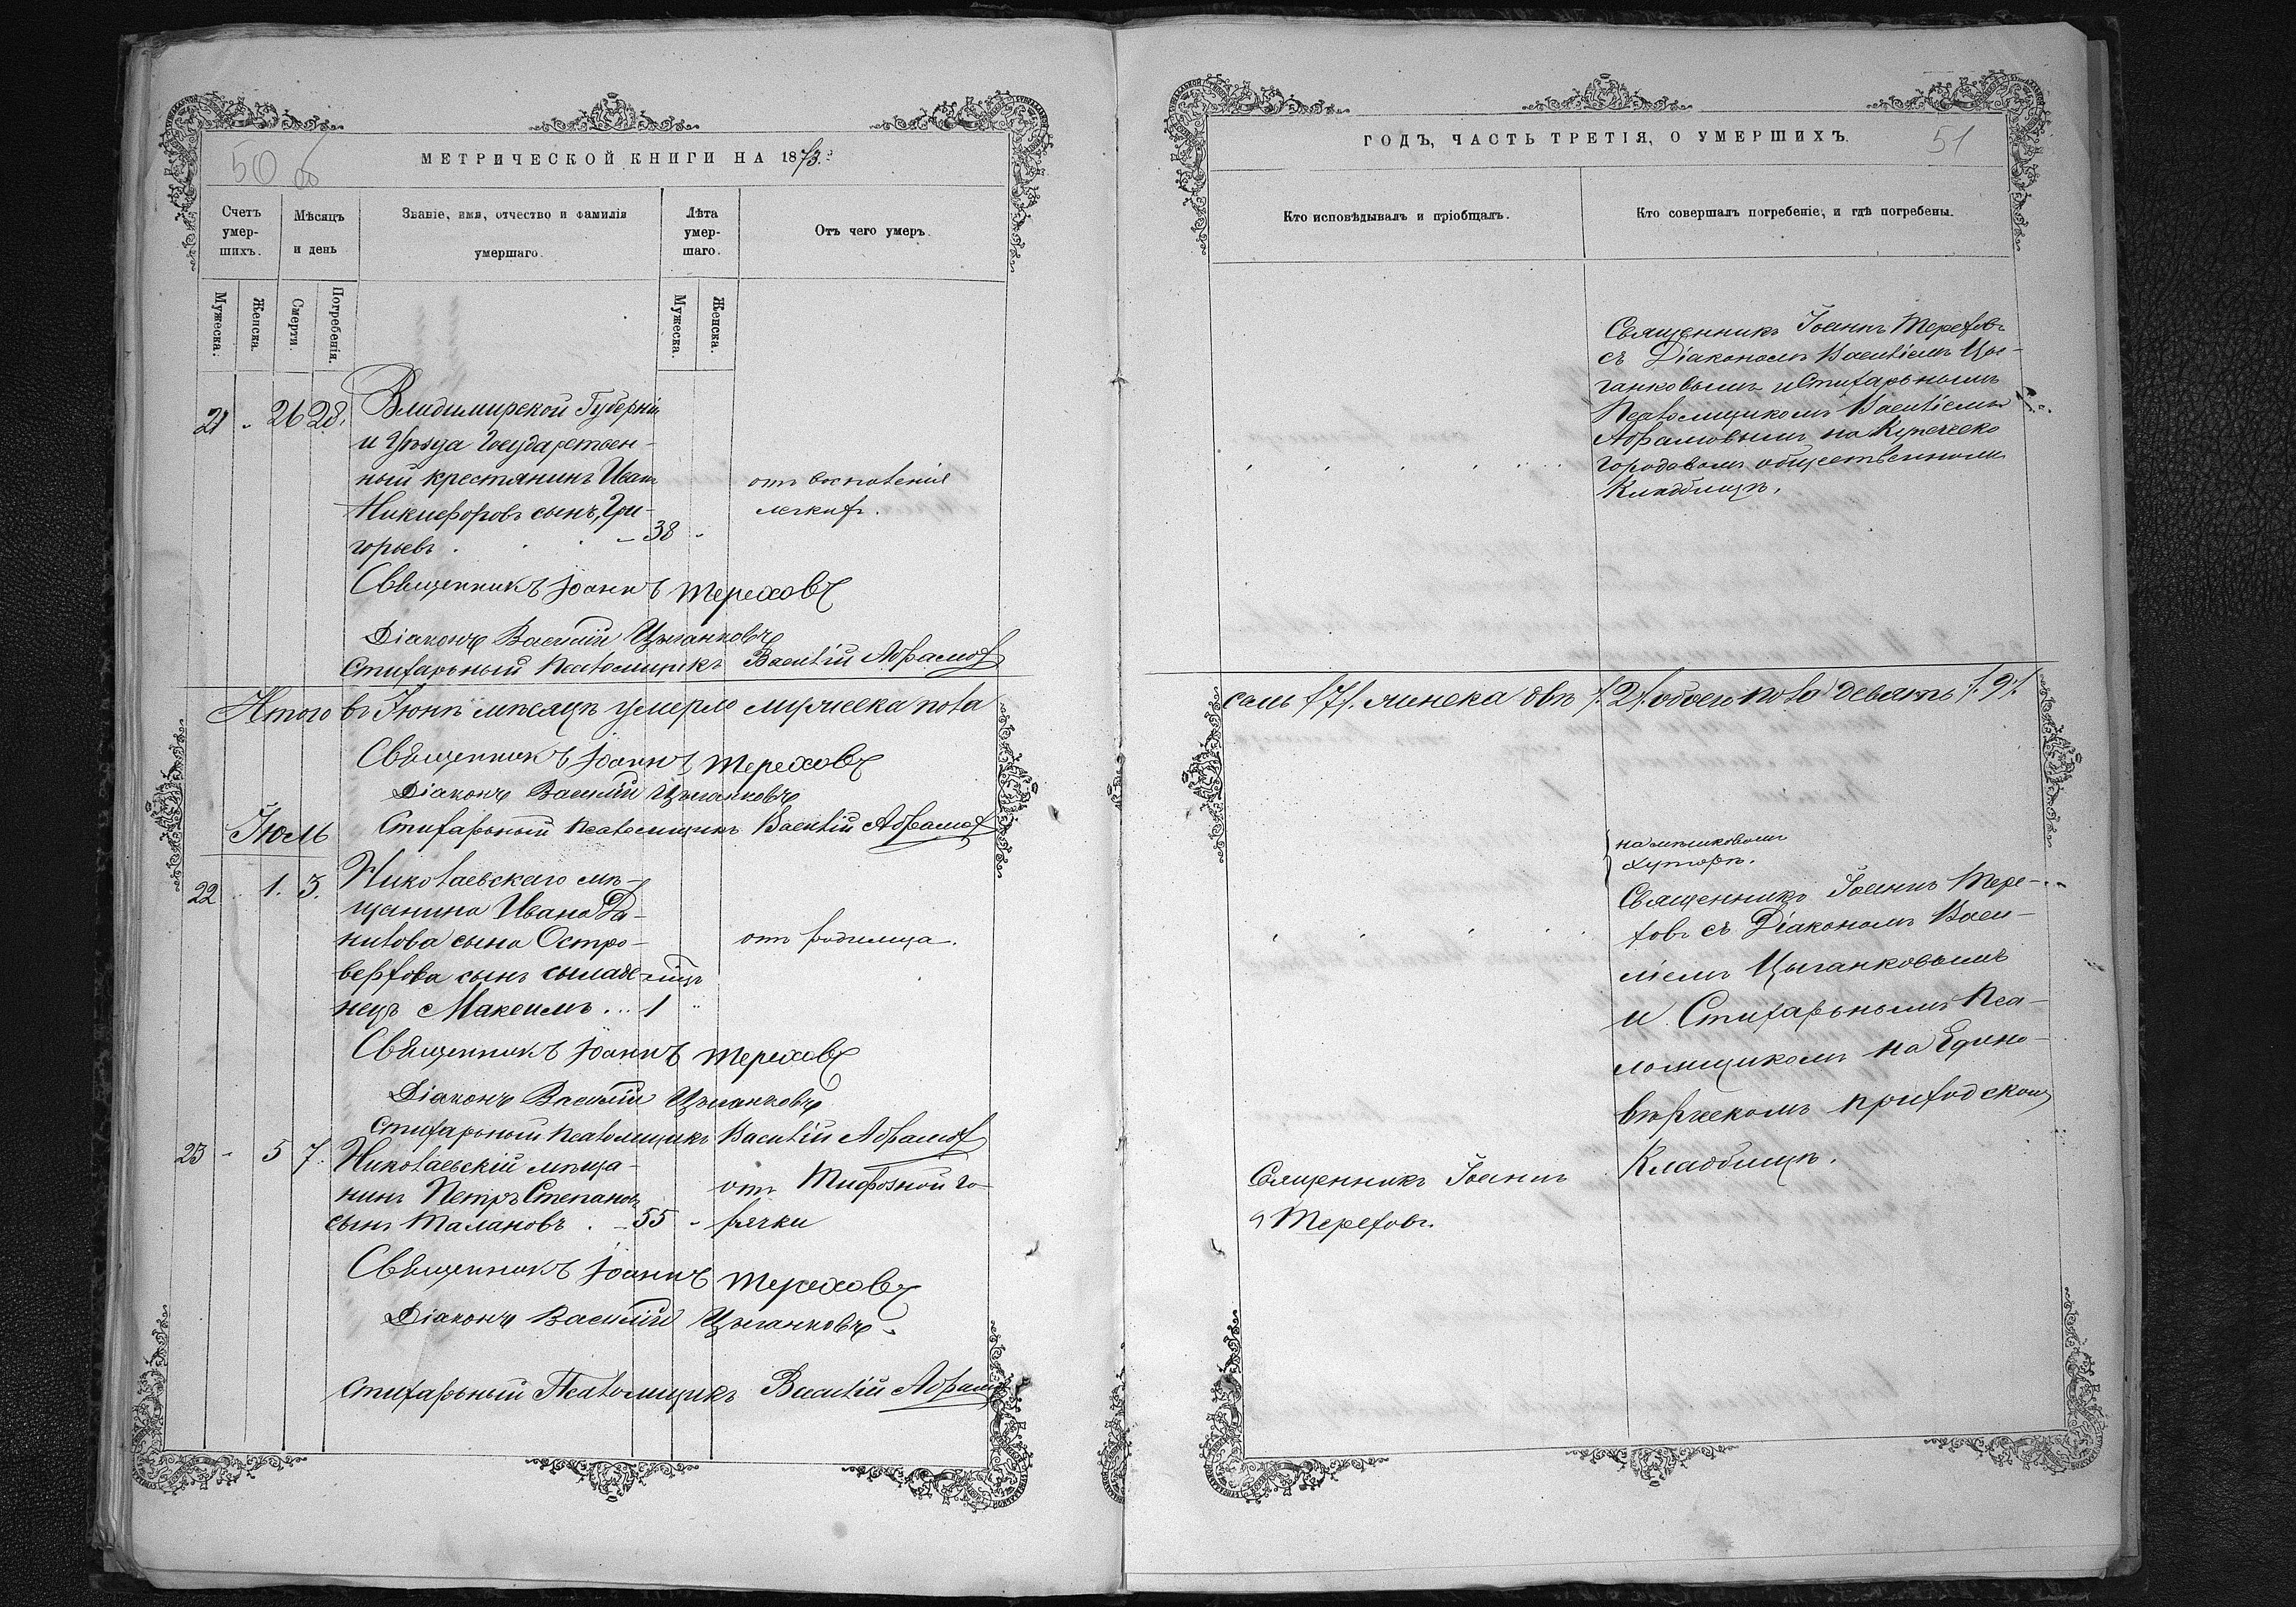 50 об
МЕТРИЧЕСКОЙ КНИГИ НА 1873:
Счетъ умер-шихъ.
Мѣсяцъ и день
Званіе, имя, отчество и фамилія умершаго.
Лѣта умер-шаго.
Отъ чего умеръ.
Мужеска.
Женска.
Смерти.
Погребенія.
Мужеска.
Женска.
21 - 26 28. Владимирской Губерніи
и Уѣзда Государствен-
ный крестянинъ Иванъ
Никифоровъ сынъ, Гри-
горьевъ . . . - 38 -
отъ воспаленія
легкихъ.
Священникъ Іоаннъ Тереховъ
Діаконъ Василій Цыганковъ
Стихарьный Псаломщикъ Василій Абрамов
Итого въ Іюнѣ мѣсяцѣ умерло мужеска пола
Священникъ Іоаннъ Тереховъ
Діаконъ Василій Цыганковъ
Стихарьный Псаломщикъ Василій Абрамов
Іюль
22 . 1. 3. Николаевскаго мѣ-
щанина Ивана Да-
нилова сына Остро-
верхова сынъ младе-
нецъ Максимъ ... 1 "
отъ родимца.
Священникъ Іоаннъ Тереховъ
Діаконъ Василій Цыганковъ
Стихарьный Псаломщикъ Василій Абрамов
23 - 5 7. Николаевскій мѣща-
нинъ Петръ Степановъ
сынъ Талановъ . - 55 -
отъ Тифозной го-
рячки
Священникъ Іоаннъ Тереховъ
Діаконъ Василій Цыганковъ.
Стихарьный Псаломщикъ Василій Абрамов
ГОДЪ, ЧАСТЬ ТРЕТІЯ, О УМЕРШИХЪ.
51
Кто исповѣдывалъ и пріобщалъ.
Кто совершалъ погребеніе, и гдѣ погребены.
Священникъ Іоаннъ Тереховъ
съ Діакономъ Василіемъ Цы-
ганковымъ и Стихарьнымъ
Псаломщикомъ Василіемъ
Абрамовымъ на Купеческо
городовомъ общественномъ
Кладбищѣ.
семь /7/. женска двѣ /2/. обоего пола девять /9/
на мѣшковомъ
хуторѣ.
Священникъ Іоаннъ Тере-
ховъ съ Діакономъ Васи-
ліемъ Цыганковымъ
и Стихарьнымъ Пса-
ломщикомъ на Едино-
вѣрческомъ приходскомъ
Кладбищѣ.
Священникъ Іоаннъ
Тереховъ.